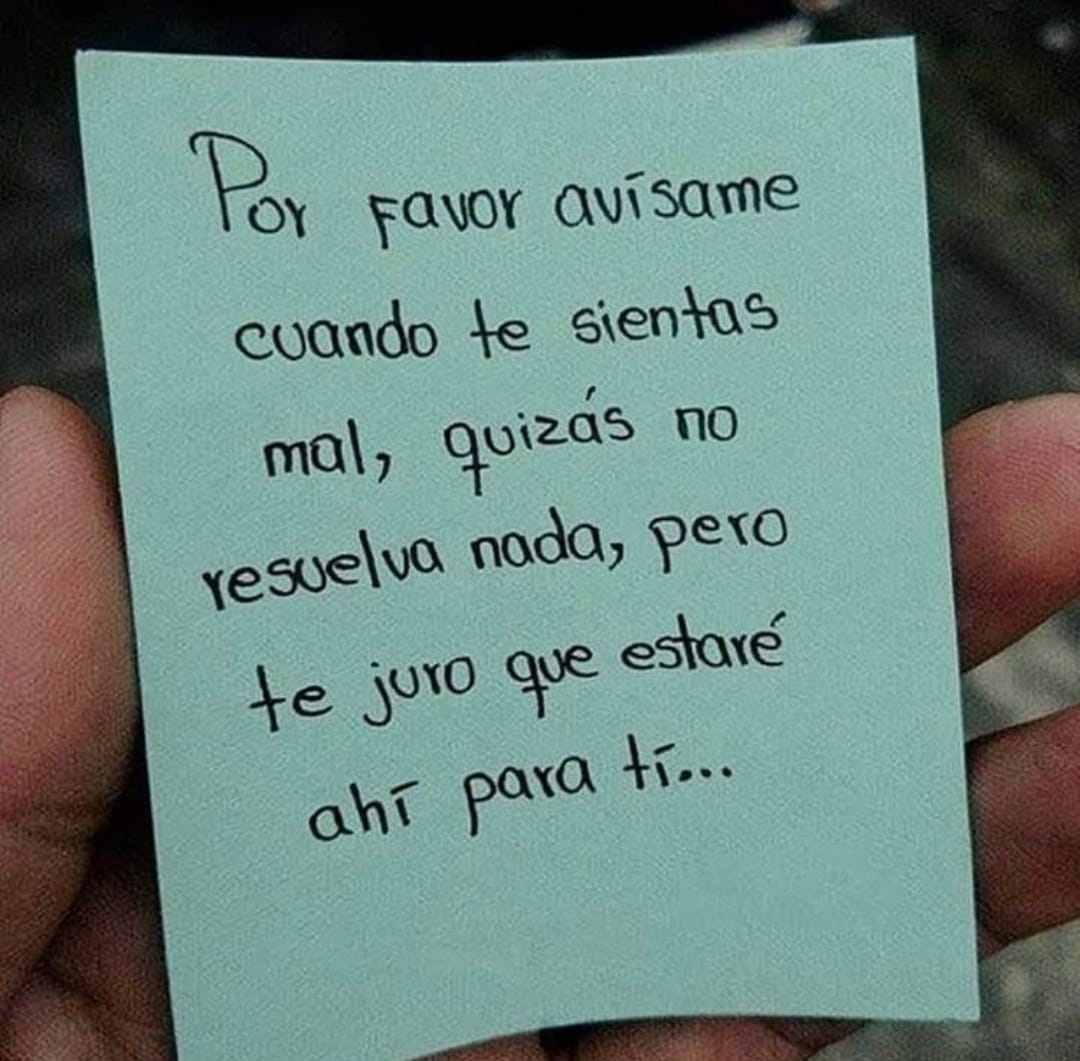 Por favor avísame
cuando te sientas
mal, quizás no
resuelva nada, pero
te juro que estaré
ahí para tí...